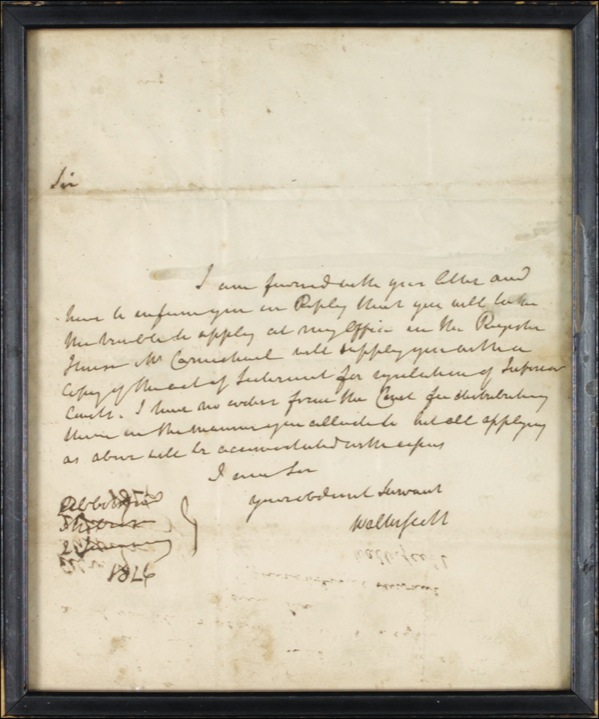 Sir
I am favored with your letter and
have to inform you in Reply that you will take
the trouble to apply at my Office in the Register
House Mr Carmichael will supply you with a
copy of the act of Sederunt for regulation of Inferior
Courts. I have no orders from the Court for distributing
them in the manner you allude to but all applying
as above will be accomodated with copies
I am Sir
your obedient Servant
Walter Scott
Abbotsford